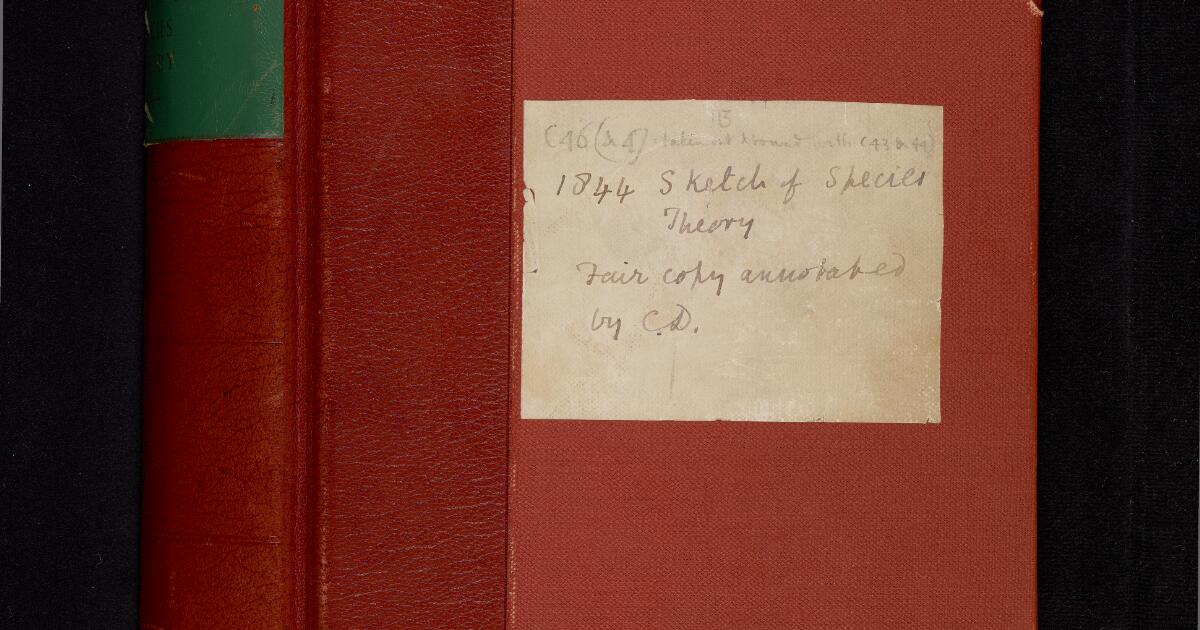 C46 (& 47) taken out & bound with C43 & 44)
1844 Sketch of Species
Theory
Fair copy annotated
by C.D.